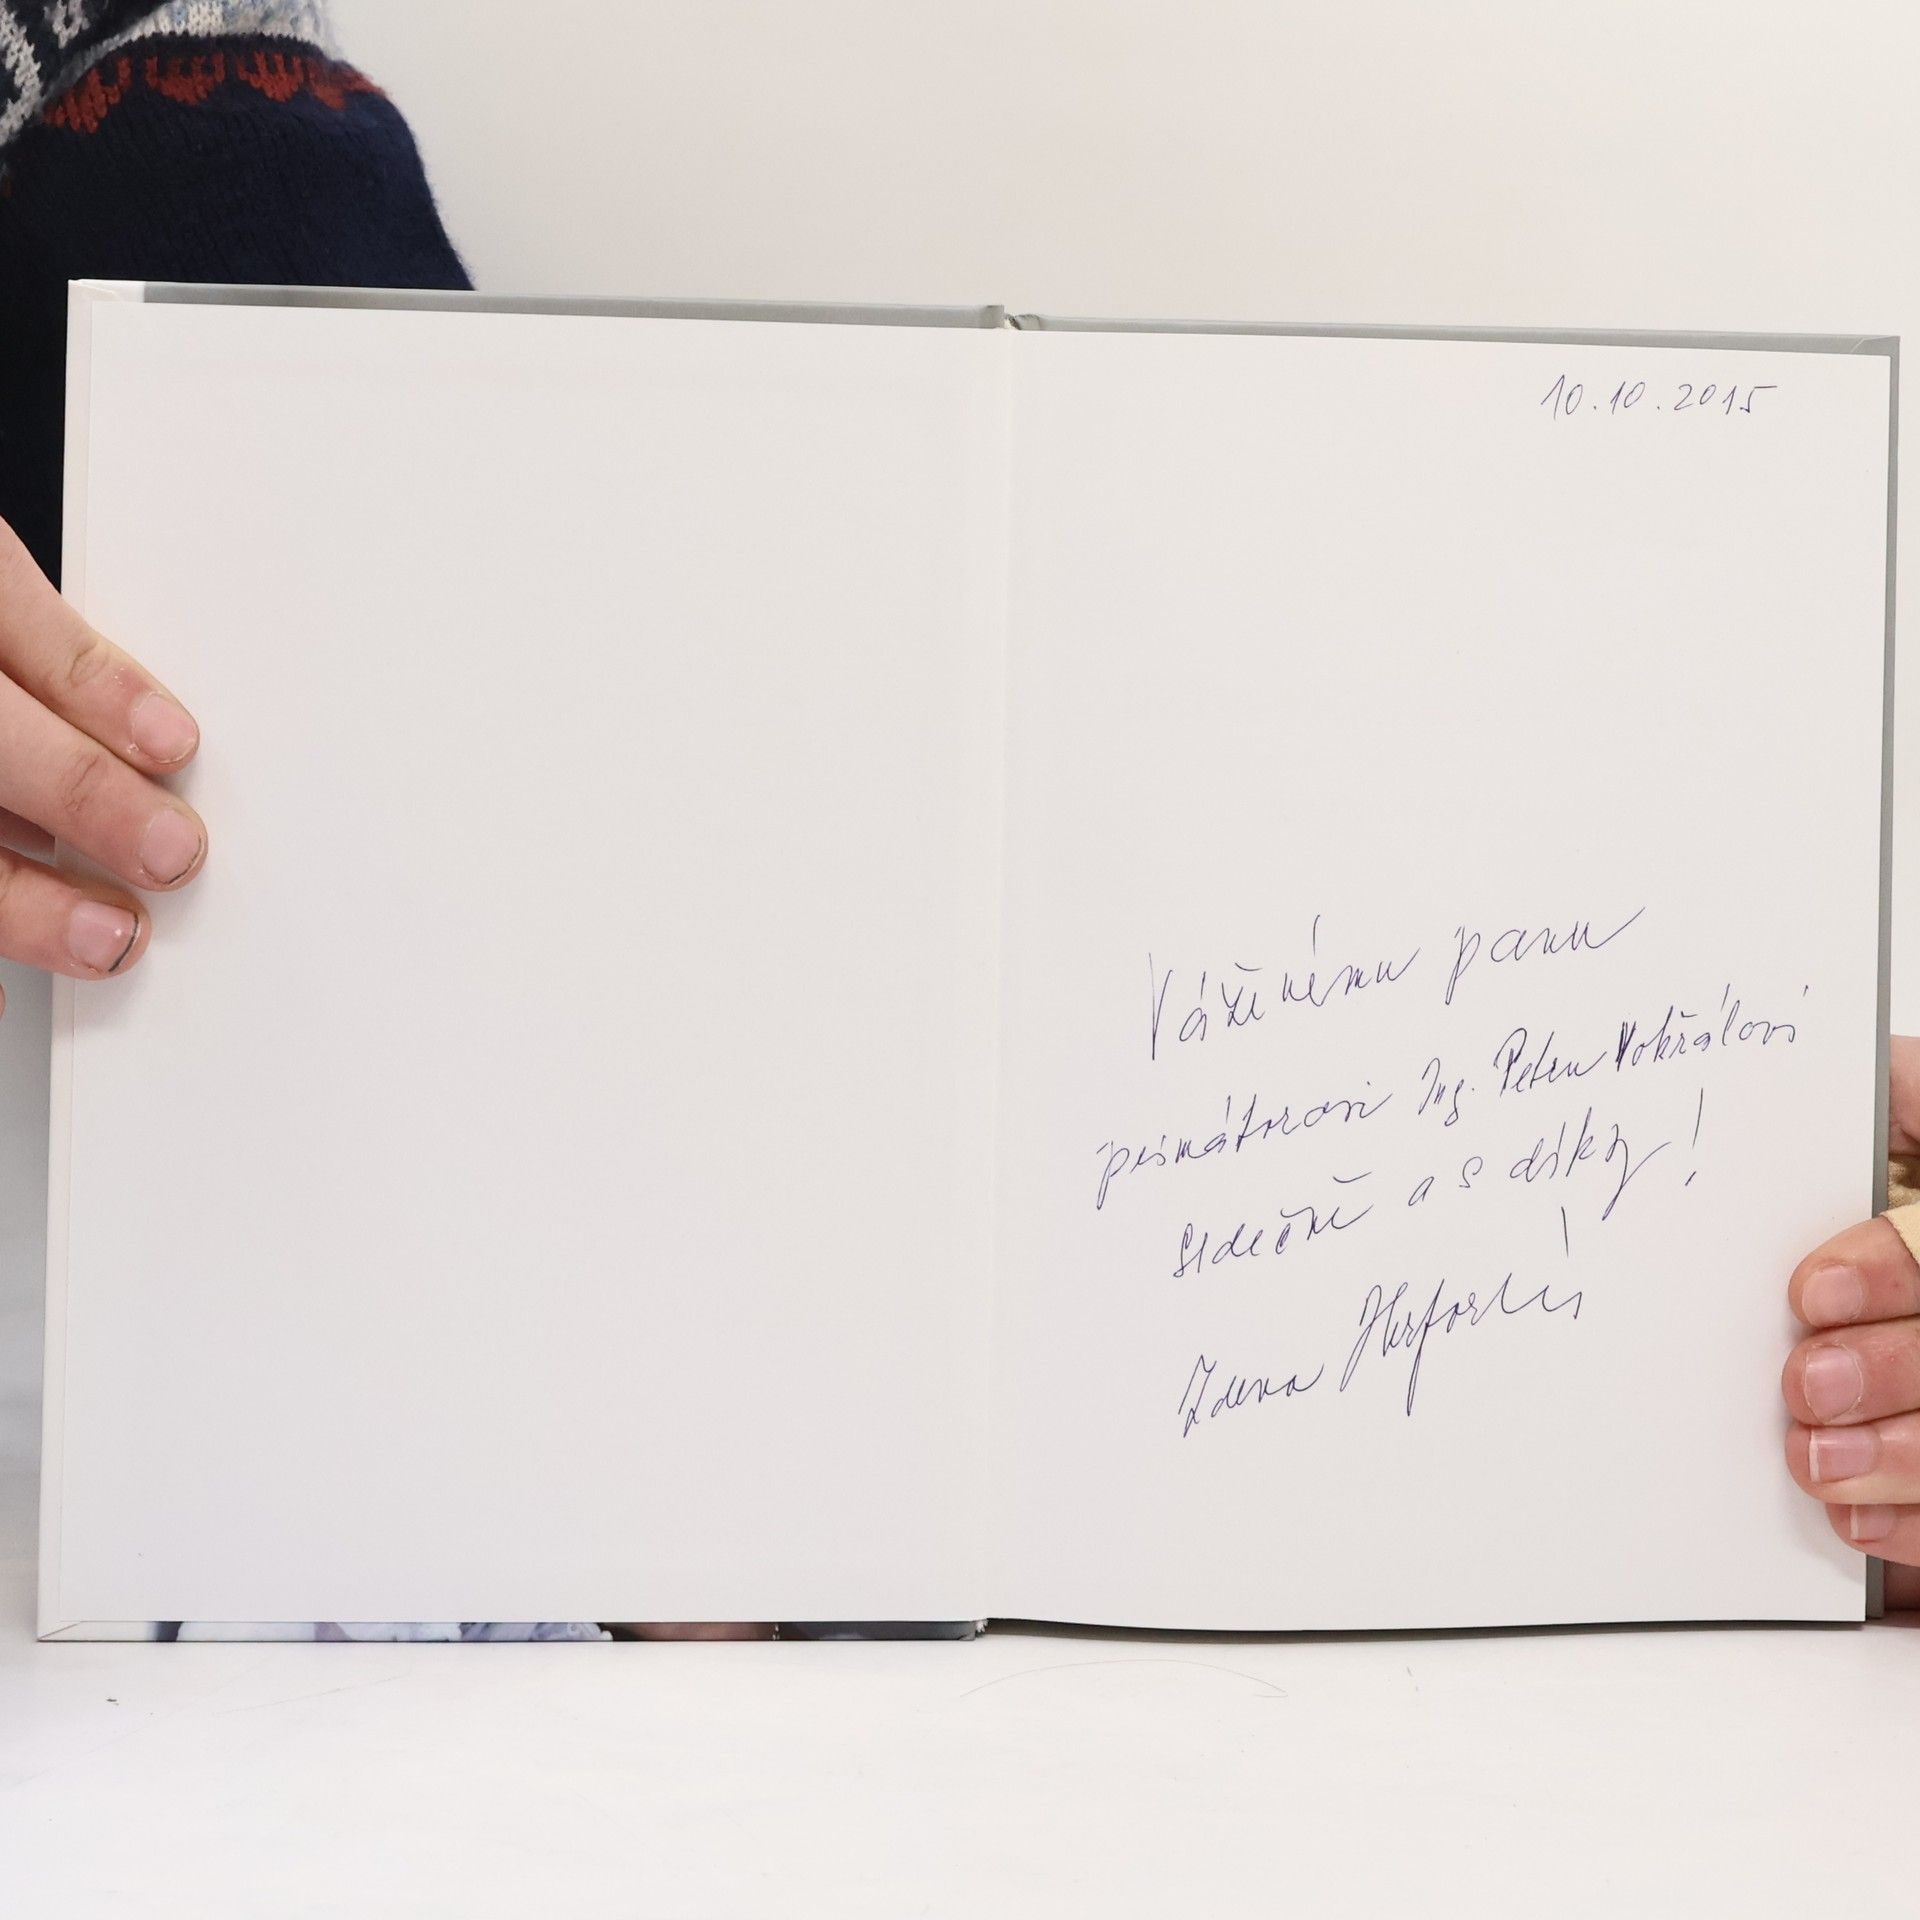 10.10.2015
Váženému panu
primátorovi Ing. Petru Vokřálovi
srdečně a s díky!
Zdena Herfortová